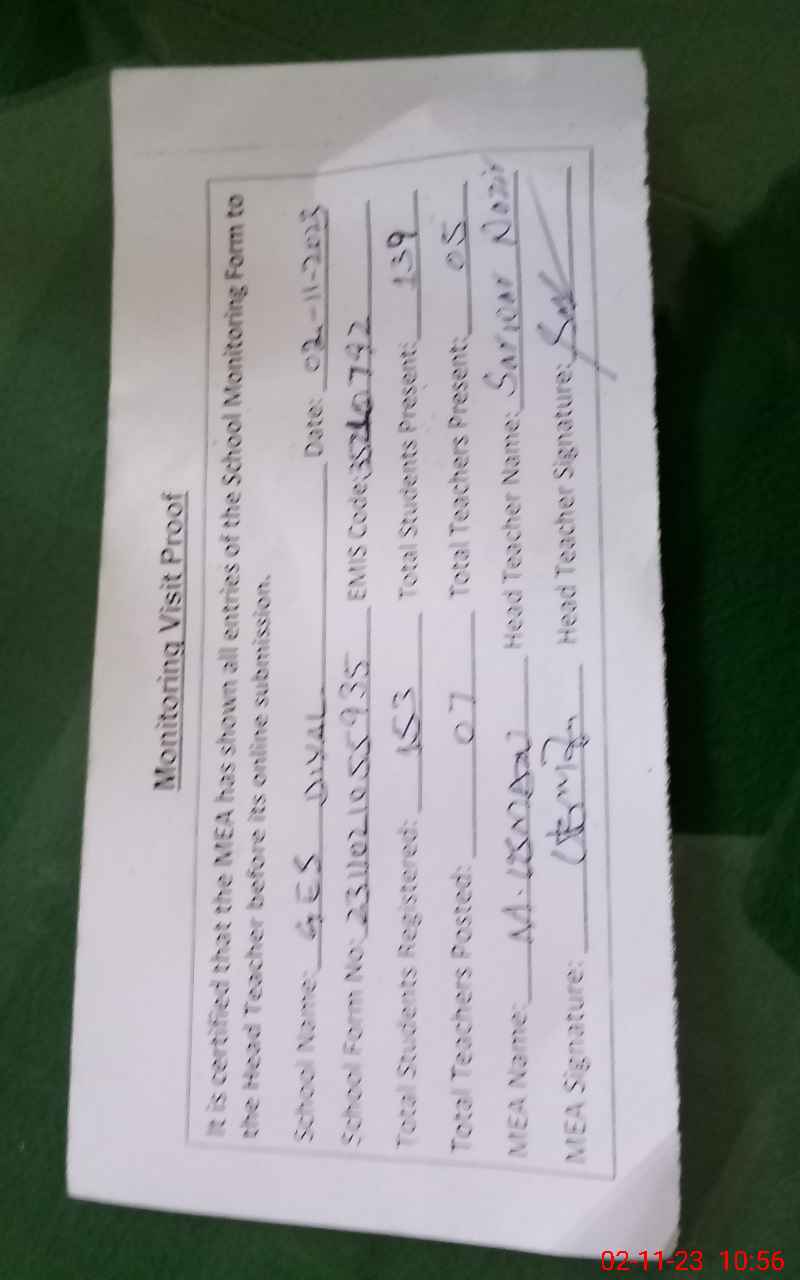 Monitoring Visit Proof
It is certified that the MEA has shown all entries of the School Monitoring Form to
the Head Teacher before its online submission.
School Name: GES DIYAL Date: 02-11-2023
School Form No: 231102105 5935 EMIS Code: 35210792
Total Students Registered: 153 Total Students Present: 139
Total Teachers Posted: 07 Total Teachers Present: 05
MEA Name: M. USMAN Head Teacher Name: Nazir
MEA Signature: Head Teacher Signature:
02-11-23 10:56